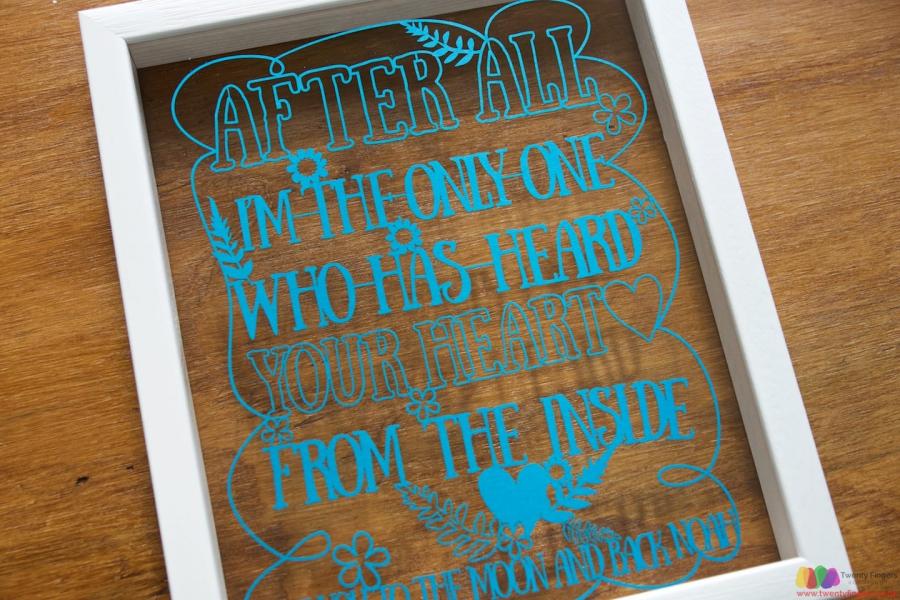 AFTER ALL
I'M THE ONLY ONE
WHO HAS HEARD
YOUR HEART
FROM THE INSIDE
TO THE MOON AND BACK NOAH
Twenty Fingers